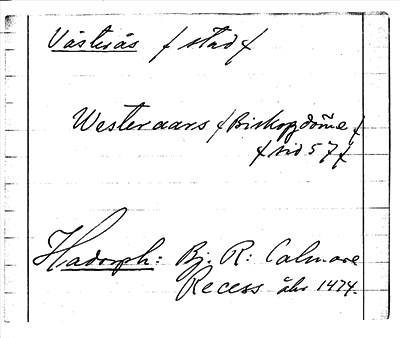 Västerås / stad /
Westeraars / Biskopzdöme /
/ sid 57 /
Hadorph: Bj. R: Calmare
Recess åhr 1474.